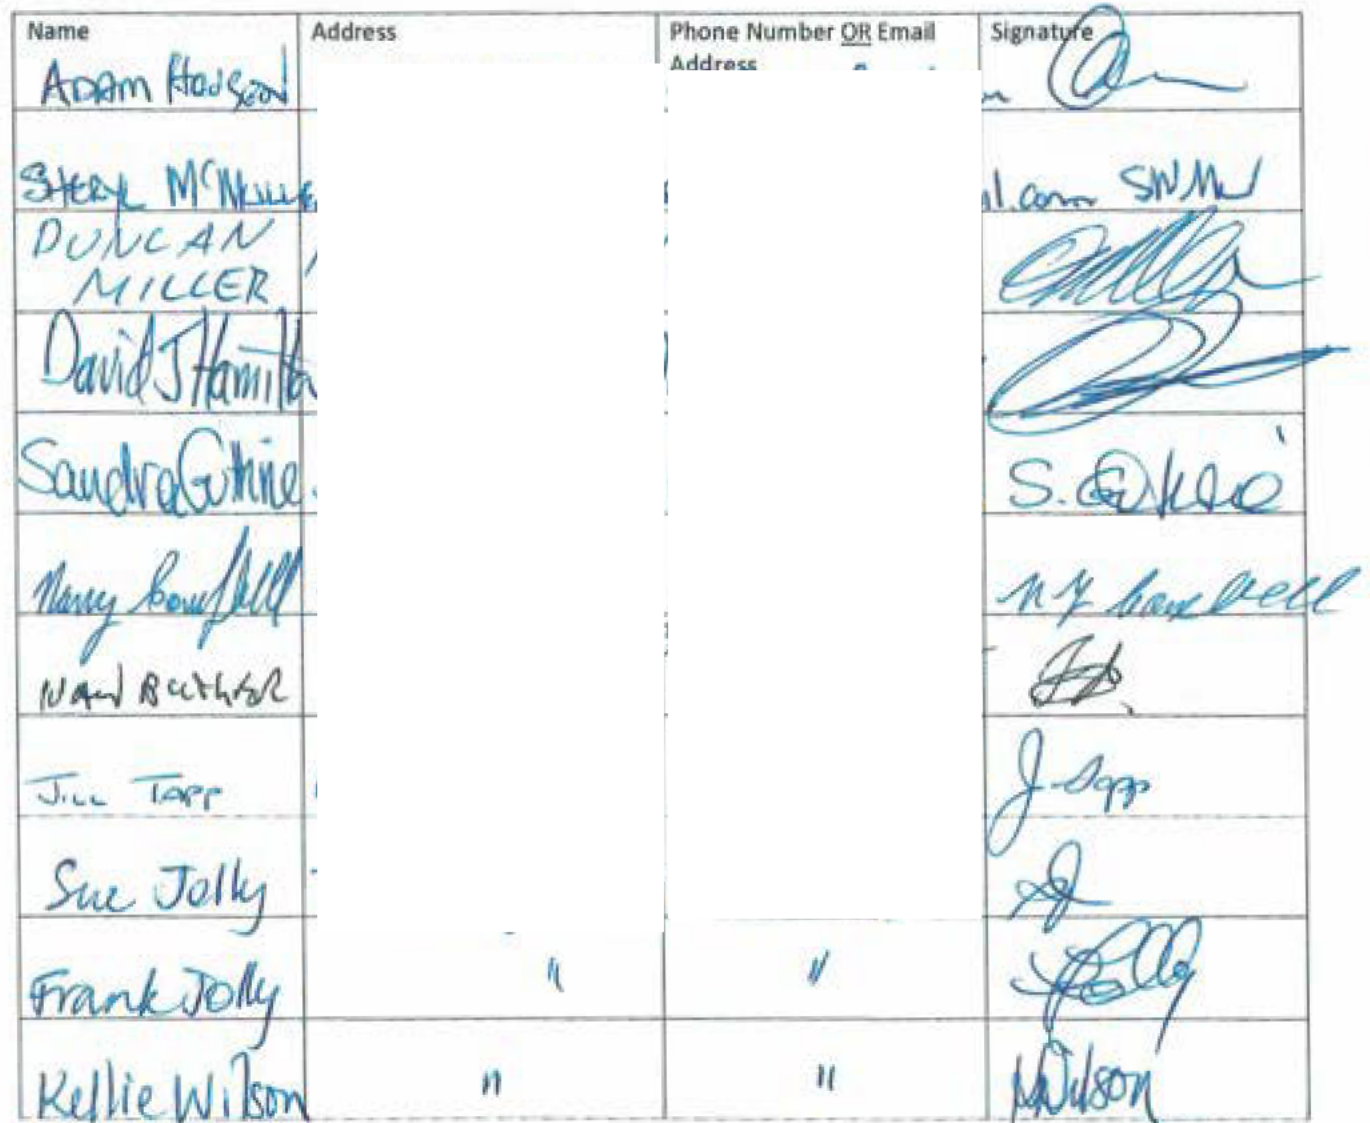 Name Address Phone Number OR Email Address Signature
ADAM
SHERYL l.com SWM
DUNCAN
MILLER
David J Hamilto
Sandra Guthrie S. Guthrie
Nancy Campbell N Y Campbell
JILL TAPP J Tapp
Sue Jolly SJ
Frank Jolly " " Jolly
Kellie Wilson " " KWilson